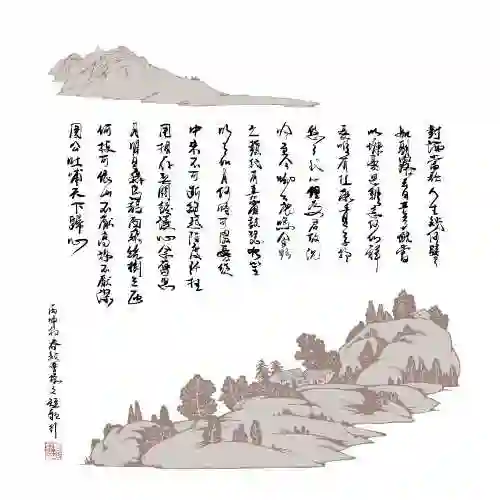 對酒當歌人生幾何譬
如朝露去日苦多慨當
以慷憂思難忘何以解
憂唯有杜康青青子衿
悠悠我心但爲君故沉
吟至今呦呦鹿鳴食野
之蘋我有嘉賓鼓瑟吹笙
明明如月何時可掇憂從
中來不可斷絕越陌度阡枉
用相存契闊談讌心念舊恩
月明星稀烏鵲南飛繞樹三匝
何枝可依山不厭高海不厭深
周公吐哺天下歸心
丙申初春敬書孟德之短歌行